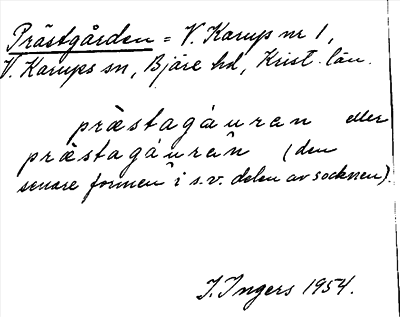 Prästgården = V. Karup nr 1,
V. Karups sn, Bjäre hd, Krist. län.
præ̀stagáuran eller
præ̀stagáu̯rän (den
senare formen i s.v. delen av socknen).
I. Ingers 1954.